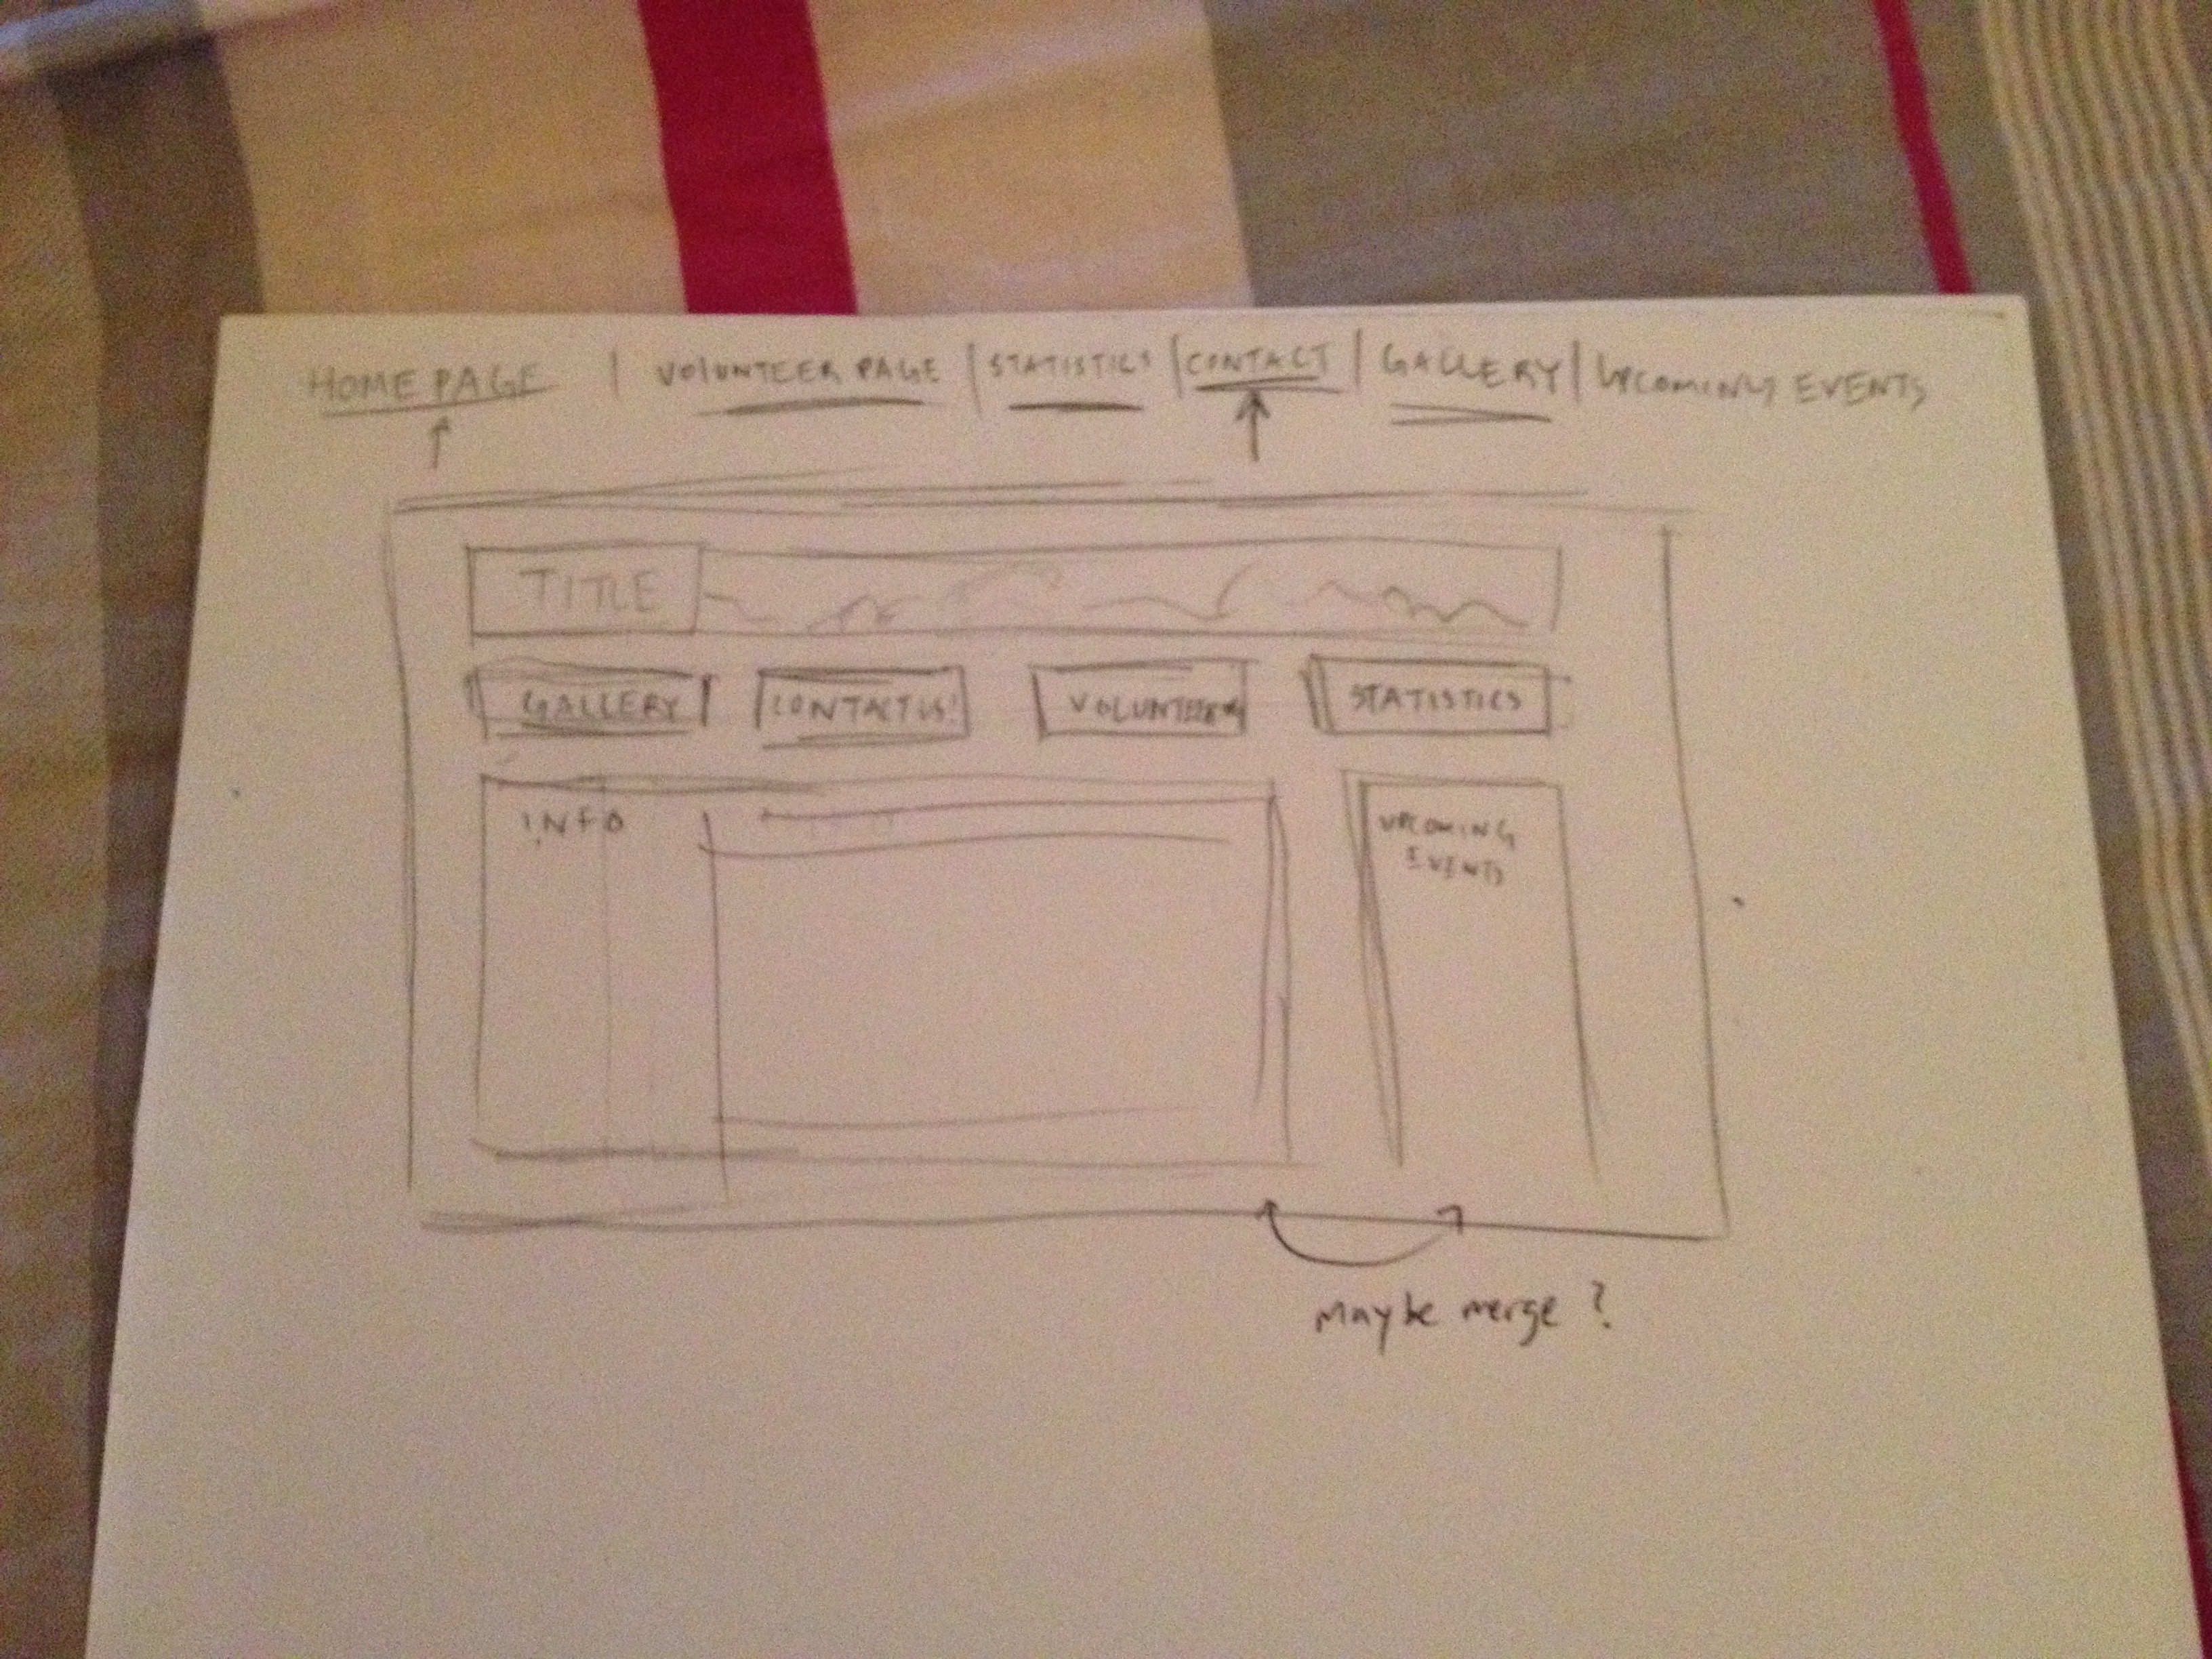 HOME PAGE | VOLUNTEER PAGE | STATISTICS | CONTACT | GALLERY | UPCOMING EVENTS
TITLE
GALLERY CONTACT US! VOLUNTEER STATISTICS
INFO
UPCOMING
EVENTS
Maybe merge?